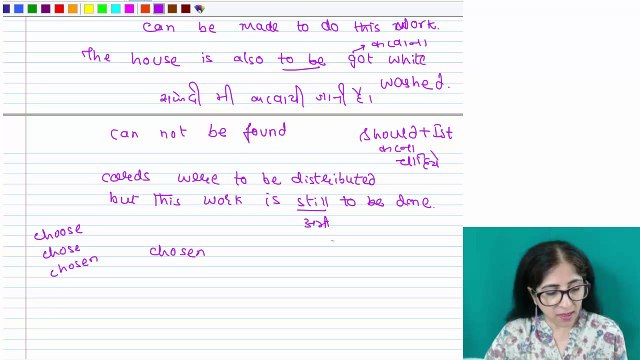 can be made to do this work.
The house is also to be got white
करवाना
washed.
सफेदी भी करवायी जानी है।
can not be found
should + Ist
करना
चाहिये
cards were to be distributed
but this work is still to be done.
अभी
choose
chose
chosen
chosen